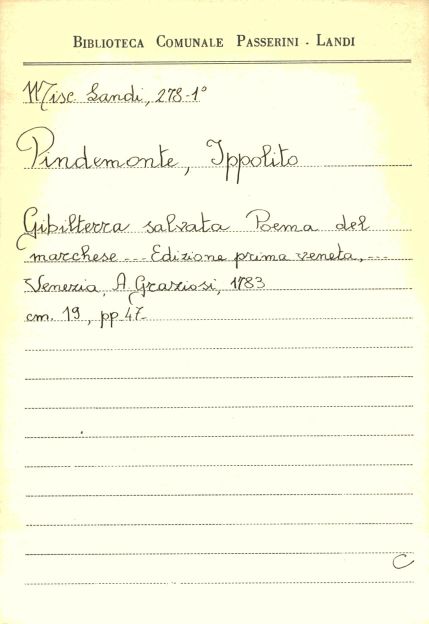 BIBLIOTECA COMUNALE PASSERINI - LANDI
Misc. Landi, 278-1°
Pindemonte, Ippolito
Gibilterra salvata Poema del
marchese --- Edizione prima veneta, ---
Venezia, A. Graziosi, 1783
cm. 19, pp. 47.
C